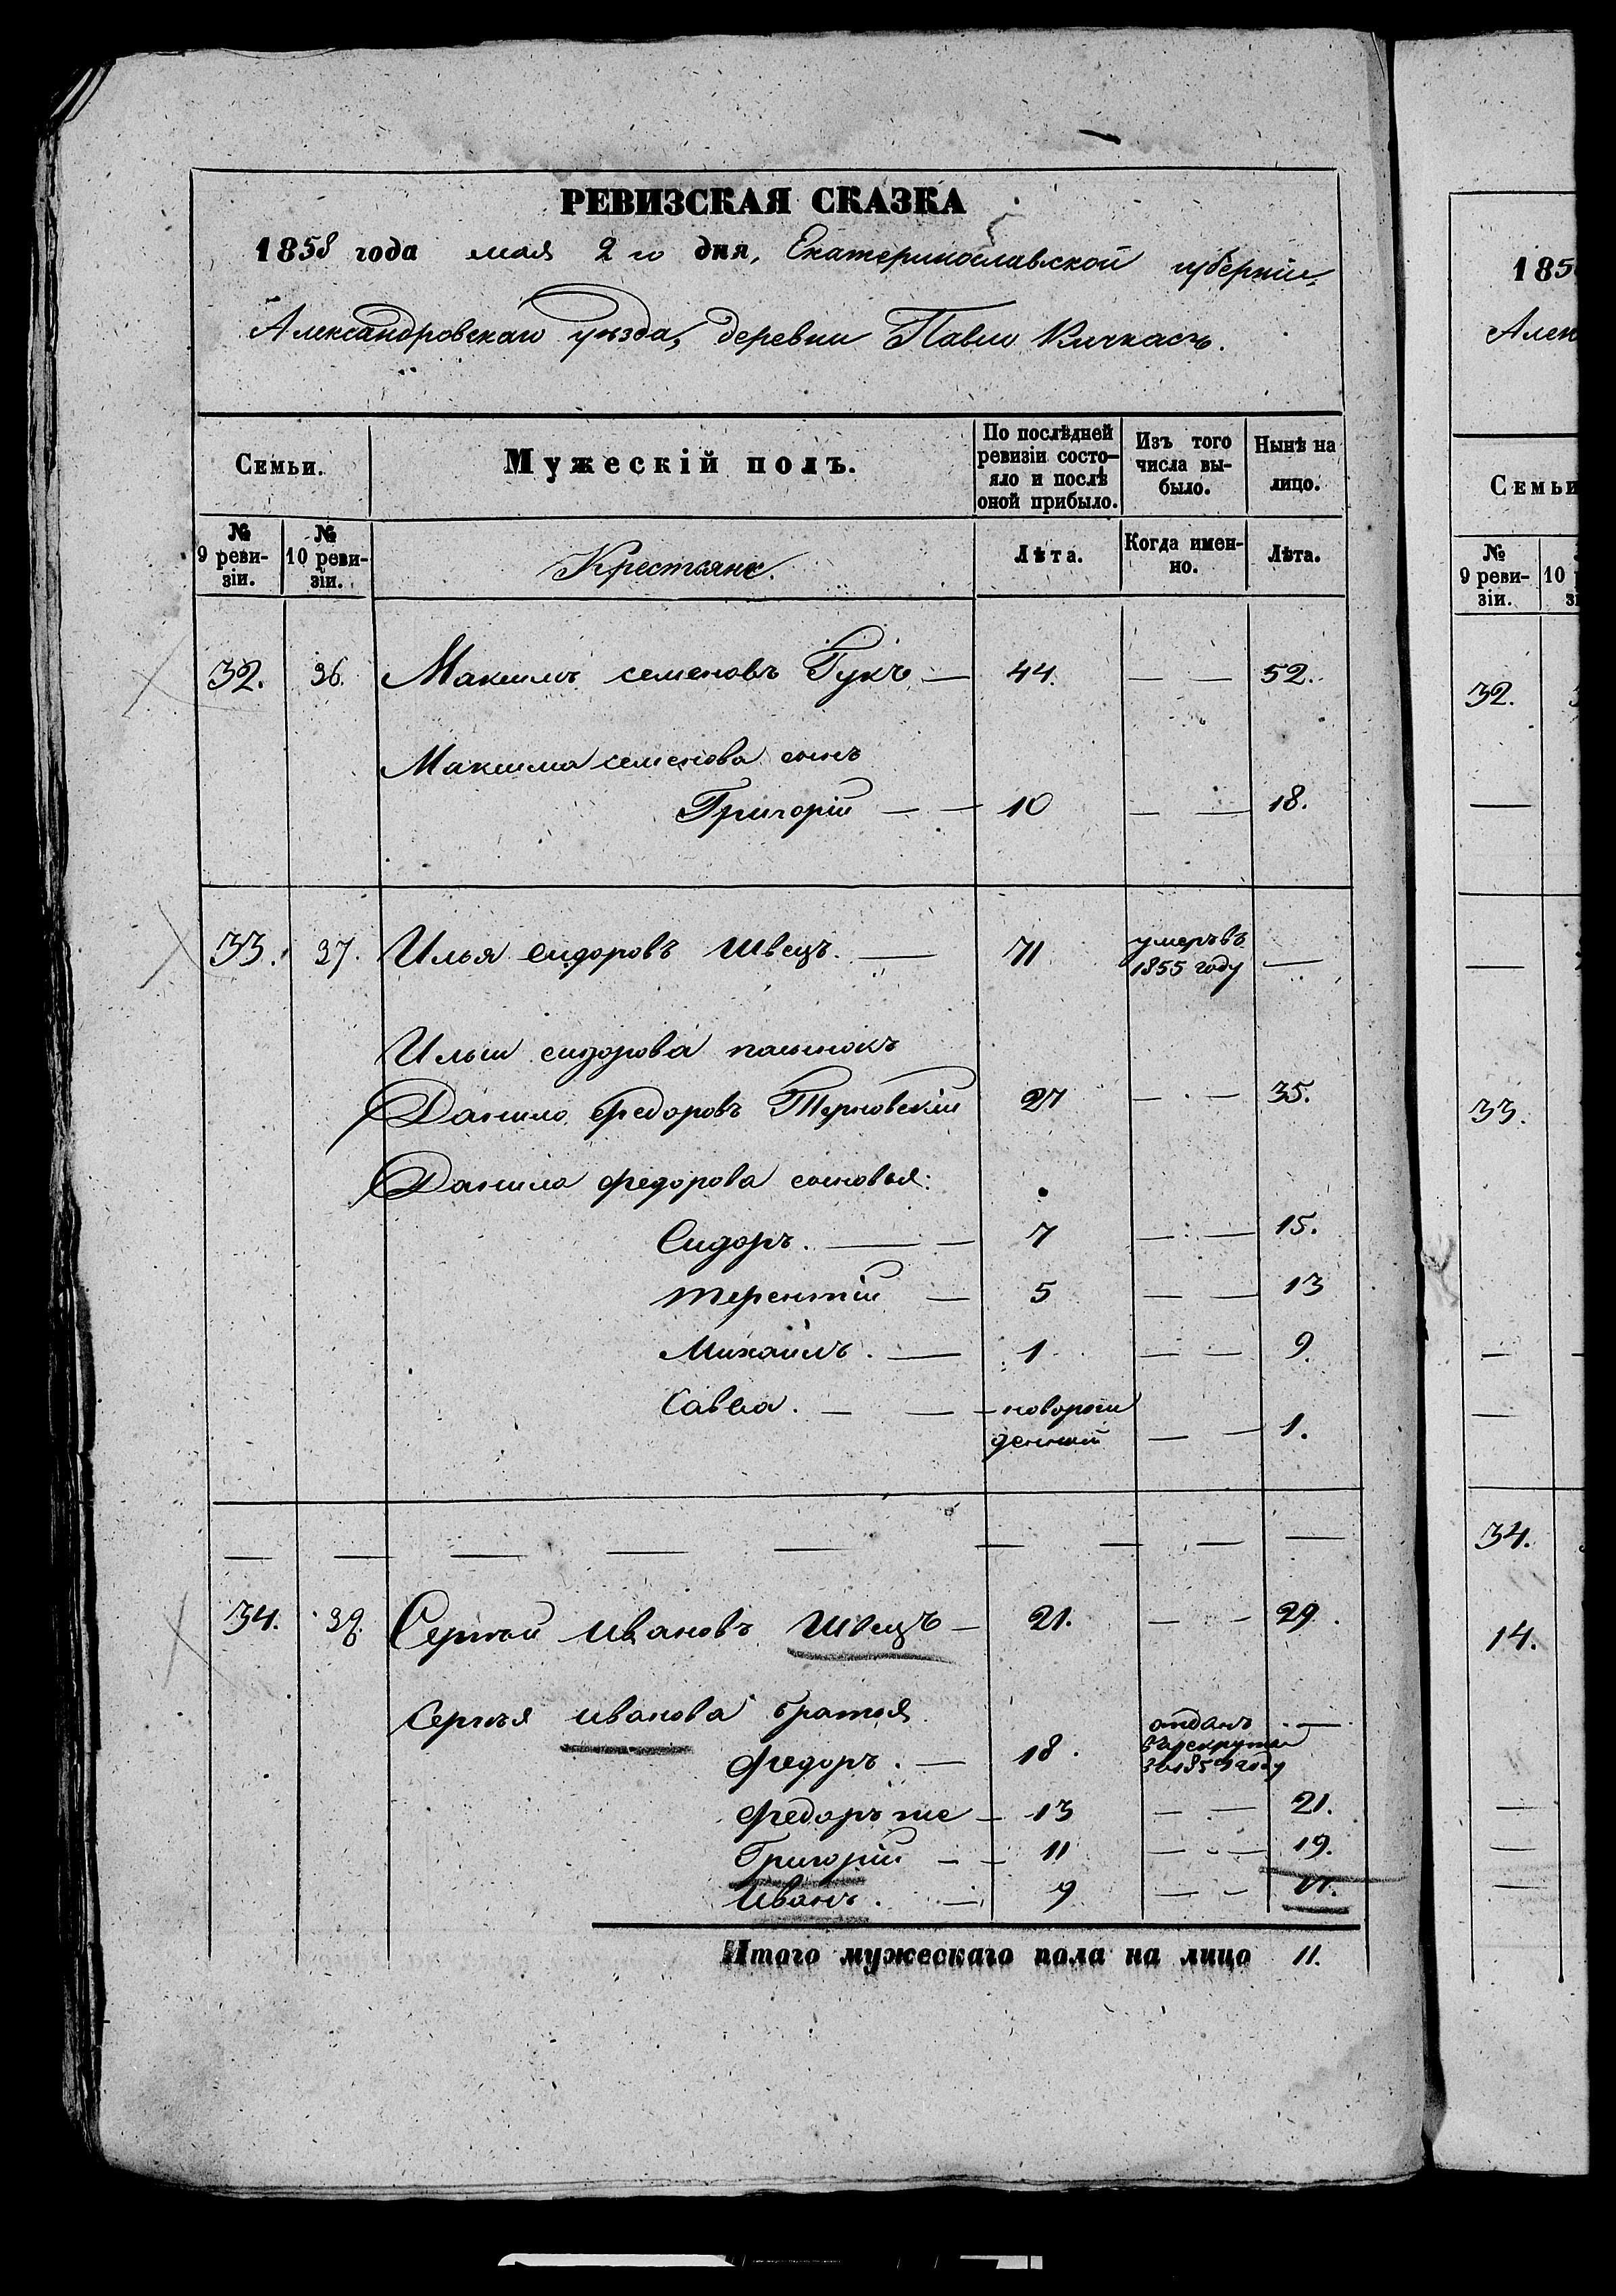 РЕВИЗСКАЯ СКАЗКА
1858 года мая 2го дня, Екатеринославской губерніи,
Александровскаго уѣзда, деревни Павло Кичкасъ.
Семьи.
Мужескій полъ.
По послѣдней ревизіи состо-
яло и послѣ оной прибыло.
Изъ того числа вы-
было.
Нынѣ на лицо.
№ 9 реви-
зіи.
№ 10 реви-
зіи.
Крестьяне.
Лѣта.
Когда имен-
но.
Лѣта.
32. 36. Максимъ семеновъ Гукъ — 44. — — 52.
Максима семенова сынъ
Григорій — — 10 — — 18.
33. 37. Илья сидоровъ Швецъ. — 71 умеръ въ 1855 году —
Ильи сидорова пасынокъ
Данило федоровъ Терновскій 27 — — 35.
Данила федорова сыновья:
Сидоръ. — — 7 — — 15.
терентій — 5 — — 13
Михаилъ. — 1 — — 9.
Савва. — — новорож
денный — — 1.
— — — — — — — — —
34. 38. Сергѣй ивановъ Швецъ — 21. — — 29.
Сергѣя иванова братья
федоръ. — 18. отданъ
въ рекруты
въ 1854 году —
федоръ же — 13 — — 21.
Григорій — — 11 — — 19.
иванъ. — 9 — — 17.
Итого мужескаго пола на лицо 11.
185
Алек
Семьи
№ 9 реви-
зіи.
10
32.
33.
34.
14.